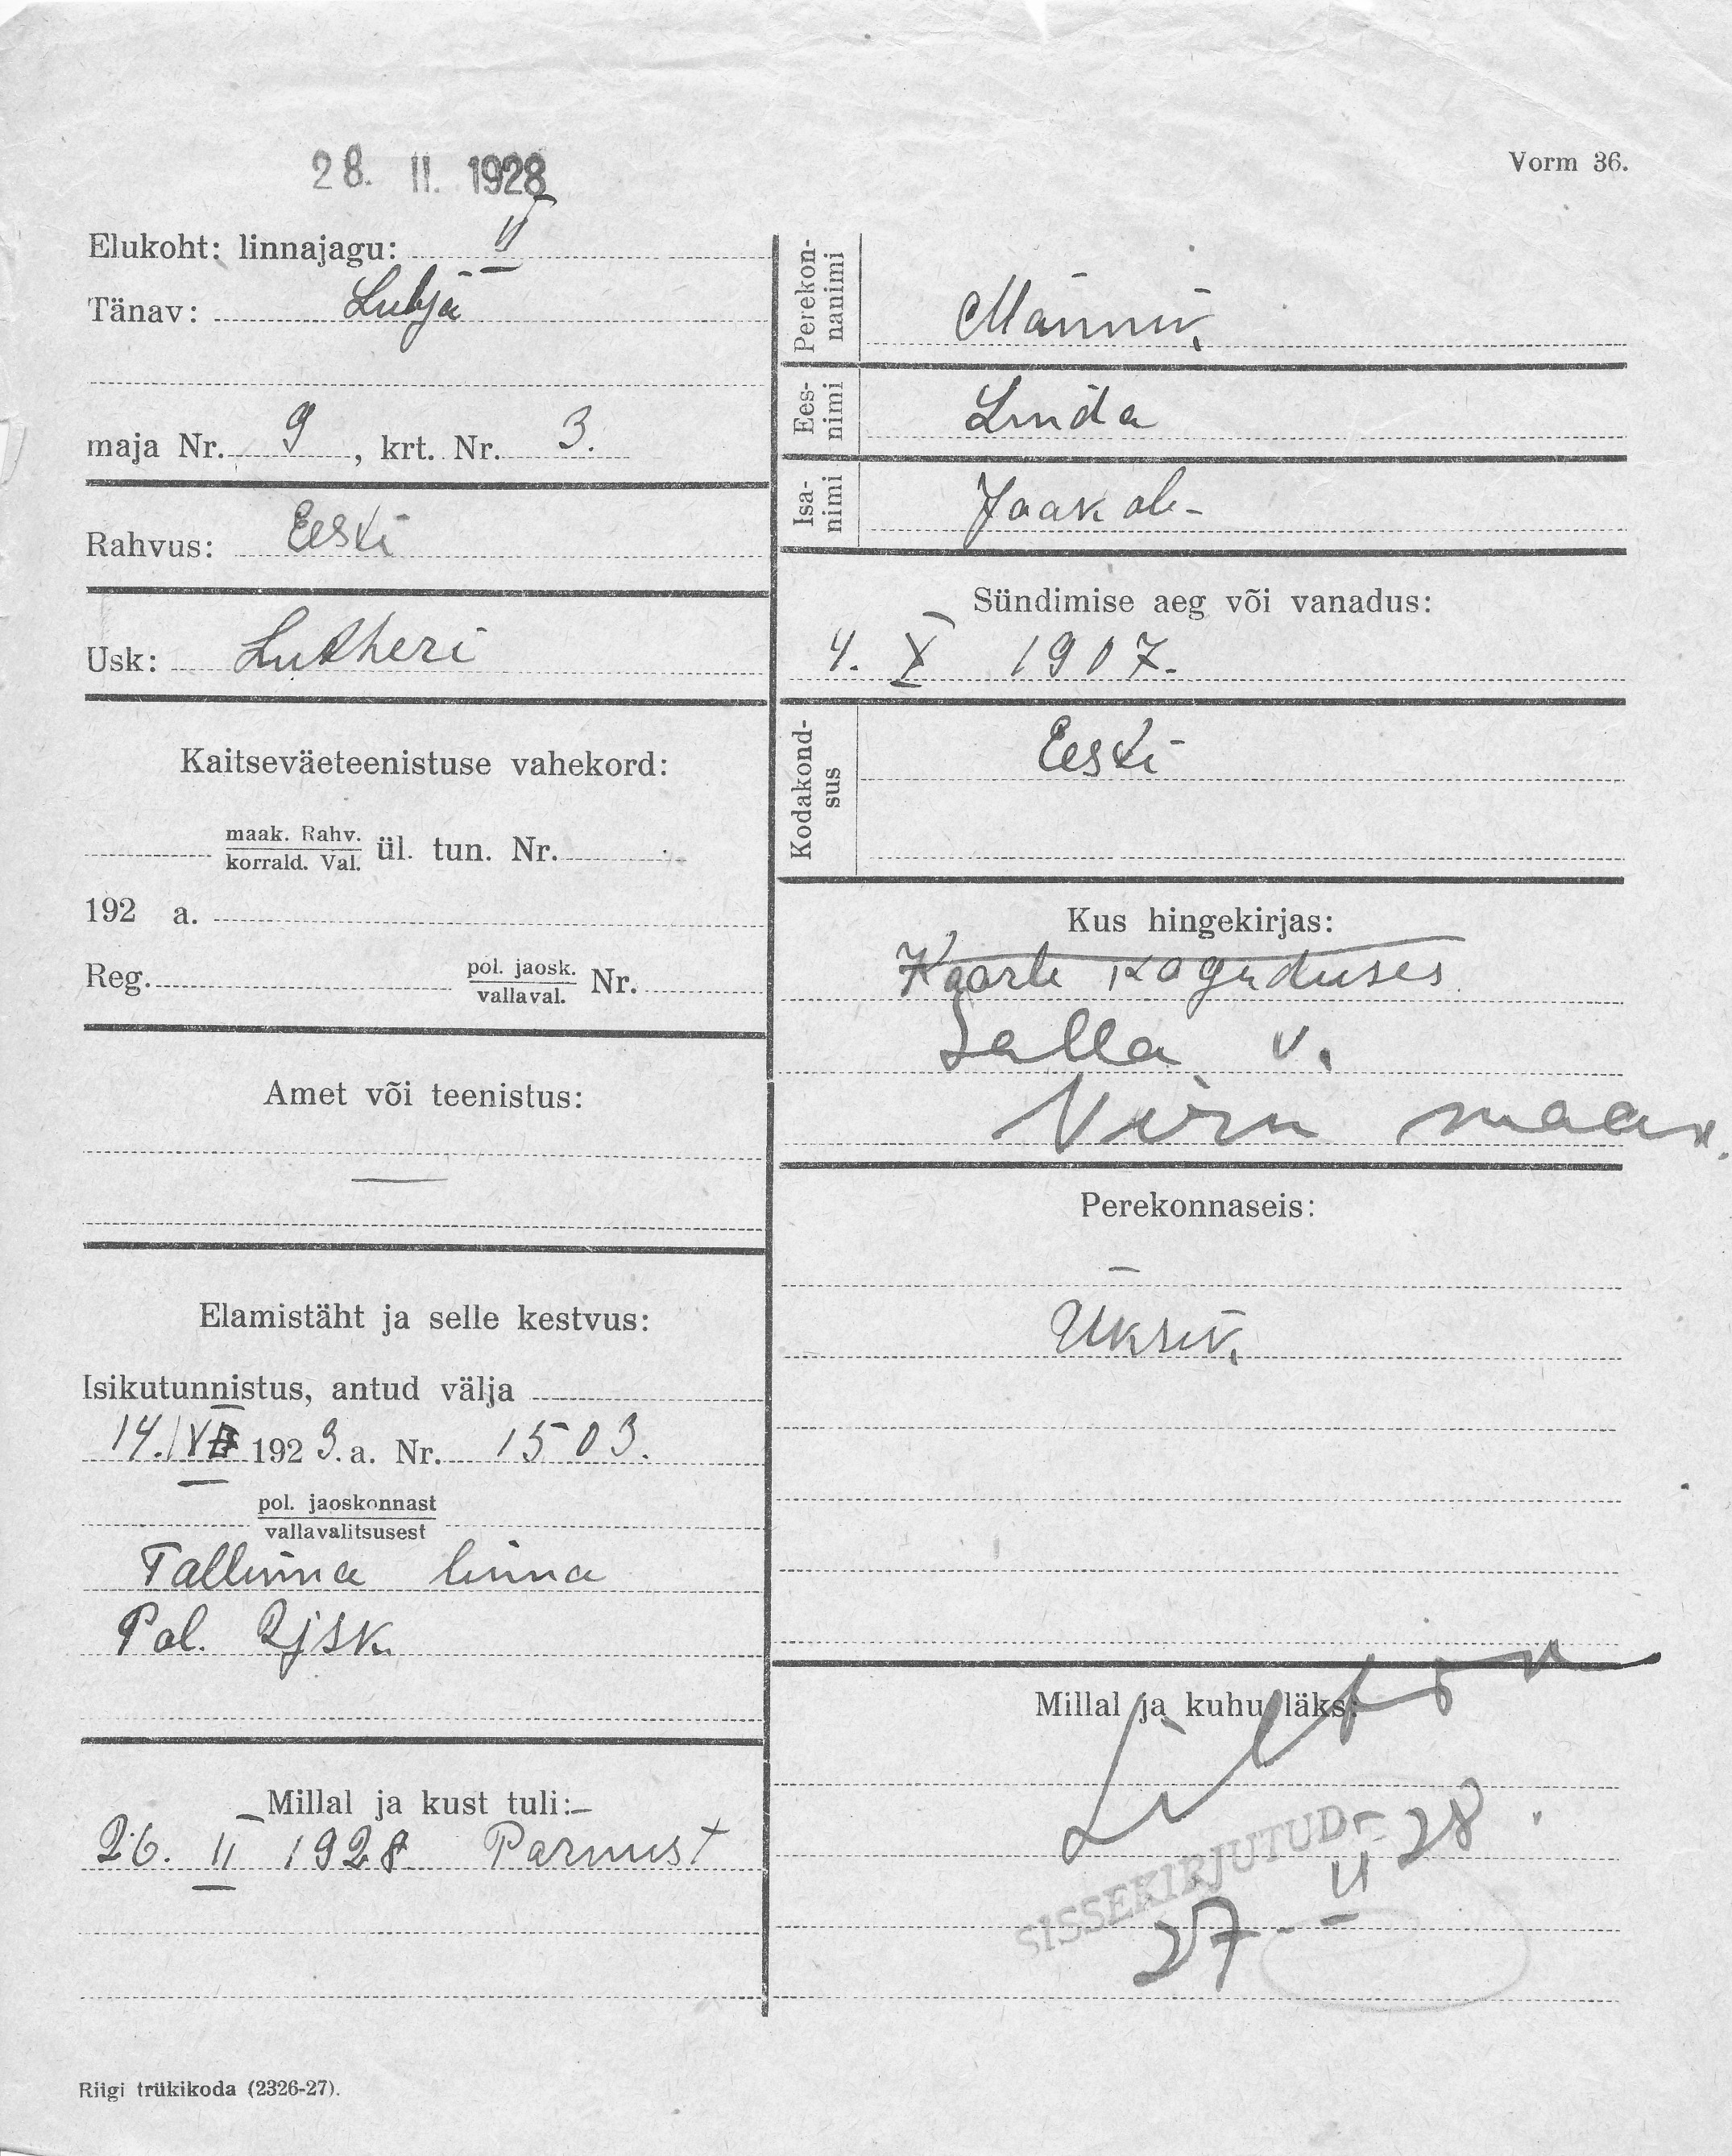 28. II. 1928
Vorm 36.
Elukoht: linnajagu: V
Tänav: Lubja
maja Nr. 9, krt. Nr. 3.
Rahvus: Eesti
Usk: Lutheri
Kaitseväeteenistuse vahekord:
maak. Rahv. korrald. Val. ül. tun. Nr.
192 a.
Reg. pol. jaosk. vallaval. Nr.
Amet või teenistus:
—
Elamistäht ja selle kestvus:
Isikutunnistus, antud välja
14. 1923. a. Nr. 1503.
pol. jaoskonnast
vallavalitsusest
Tallinna linna
Pol. 2 jsk.
Millal ja kust tuli:
26. II 1928 Pärnust
Riigi trükikoda (2326-27).
Perekonnanimi
Männik,
Eesnimi
Linda
Isanimi
Jaak
Sündimise aeg või vanadus:
4. X 1907.
Kodakondsus
Eesti
Kus hingekirjas:
Kaarli koguduses
Salla v.
Viru maak.
Perekonnaseis:
—
Üksik.
Millal ja kuhu läks:
SISSEKIRJUTUD
27 - II - 28.